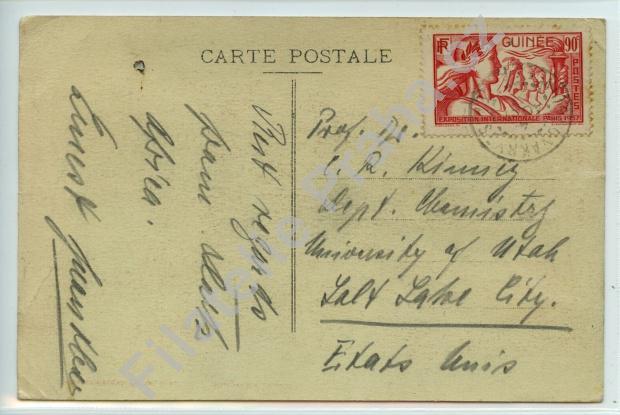 CARTE POSTALE
RF GUINÉE 90c
POSTES
EXPOSITION INTERNATIONALE PARIS 1937
Best regards
from
Africa.
Ernest
Prof. Dr.
C. R. Kinney
Dept. Chemistry
University of Utah
Salt Lake City.
Etats Unis
Filatelie Praha.cz